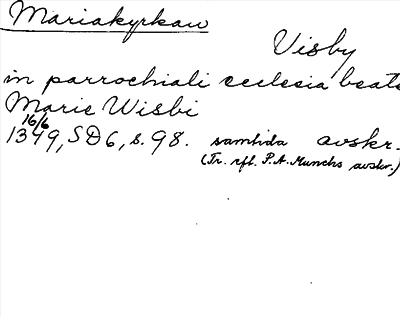 Mariakyrkan
Visby
in parrochiali ecclesia beate
Marie Wisbi
16/6
1349, SD6, s. 98. samtida avskr.
(Tr. efl. P.A. Munchs avskr.)